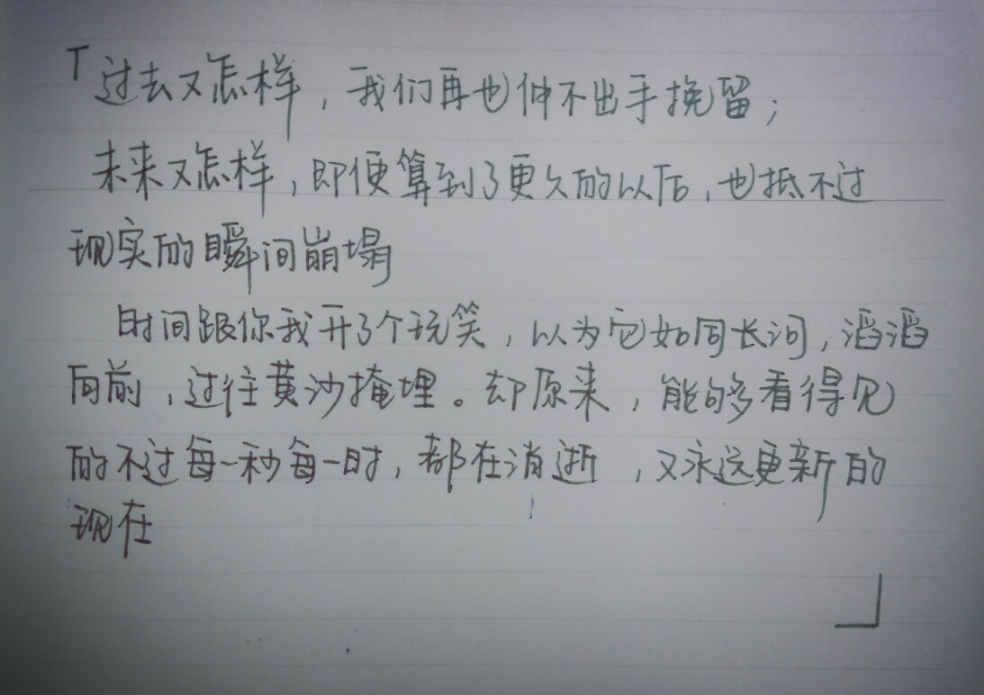 「过去又怎样，我们再也伸不出手挽留；
未来又怎样，即便算到了更久的以后，也抵不过
现实的瞬间崩塌
时间跟你我开了个玩笑，以为它如同长河，滔滔
向前，过往黄沙掩埋。却原来，能够看得见
的不过每一秒每一时，都在消逝，又永远更新的
现在
」